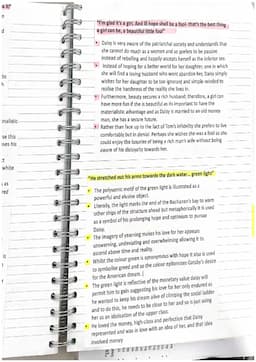 "I'm glad it's a girl. And I'll hope shell be a fool- that's the best thing
a girl can be, a beautiful little fool"
Daisy is very aware of the patriarchal society and understands that
she cannot do as much as a women and so prefers to be passive
instead of rebelling and happily accepts herself as the inferior sex
Instead of hoping for a better world for her daughter, one in which
she will find a loving husband who wont abandon her, Daisy simply
wishes for her daughter to be too ignorant and simple minded to
realise the harshness of the reality she lives in.
Furthermore, beauty secures a rich husband, therefore, a girl can
have more fun if she is beautiful as its important to have the
materialistic advantage and as Daisy is married to an old money
man, she has a secure future.
Rather than face up to the fact of Tom's infidelity she prefers to live
comfortable but in denial. Perhaps she wishes she was a fool so she
could enjoy the luxuries of being a rich man's wife without being
aware of his disloyalty towards her.
"He stretched out his arms towards the dark water... green light"
The polysemic motif of the green light is illustrated as a
powerful and elusive object.
Literally, the light marks the end of the Buchanan's bay to warn
other ships of the structure ahead but metaphorically it is used
as a symbol of his prolonging hope and optimism to pursue
Daisy.
The imagery of yearning makes his love for her appears
unwavering, undeviating and overwhelming allowing it to
ascend above time and reality.
Whilst the colour green is synonymous with hope it also is used
to symbolise greed and so the colour epitomises Gatsby's desire
for the American dream.
The green light is reflective of the monetary value daisy will
permit him to gain suggesting his love for her only endured as
he wanted to keep his dream alive of climbing the social ladder
and to do this, he needs to be close to her and so is just using
her as an idolisation of the upper class.
He loved the money, high-class and perfection that Daisy
represented and was in love with an idea of her, and that idea
involved money